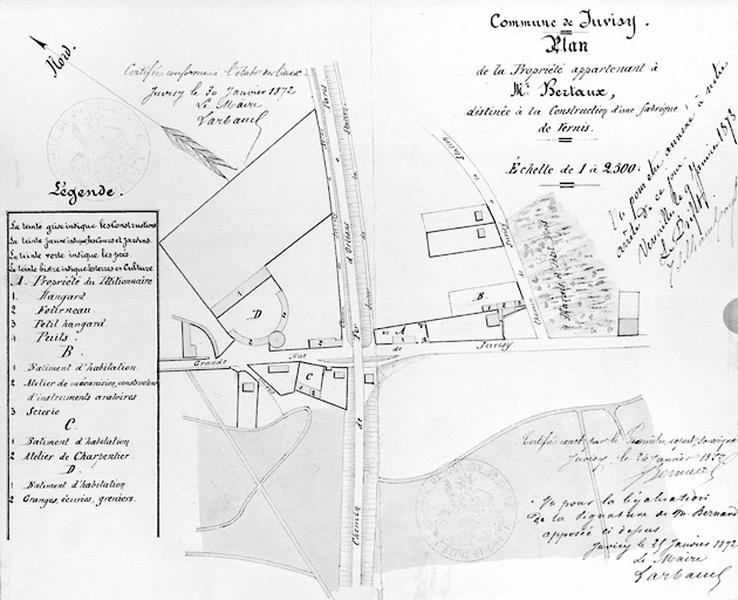 Commune de Juvisy.
Plan
de la Propriété appartenant à
Mr Bertaux,
déstinée à la Construction d'une fabrique
de Vernis.
Échelle de 1 à 2.500
Nord.
Certifié conforme à l'état des lieux
Juvisy le 30 Janvier 1872
Le Maire
Larbaud
Vu pour être annexé à notre
arrêté de ce jour.
Versailles Janvier 1873
Le Préfet
Légende.
La teinte grise indique les Constructions
La teinte jaune indique les Cours et Jardins.
La teinte verte indique les prés
La teinte bistre indique les terres en Culture
A. Propriété du Pétitionnaire
1. Hangard
2. Fourneau
3. Petit hangard
4. Puits.
B.
1 Batiment d'habitation
2 Atelier de mécanicien, constructeur
d'instruments aratoires
3 Scierie
C.
1 Batiment d'habitation
2 Atelier de Charpentier.
D.
1 Batiment d'habitation.
2 Granges, écuries, greniers.
Paris
d'Orléans
D
1
2
B
A
C
1 2
Grande Rue de Juvisy
Chemin de Fer
Certifié exact par le Géomètre, expert soussigné
Juvisy, le 24 Janvier 1872
Bernard
Vu pour la légalisation
de la signature de M. Bernard
apposée ci dessus
Juvisy le 25 Janvier 1872
Le Maire
Larbaud